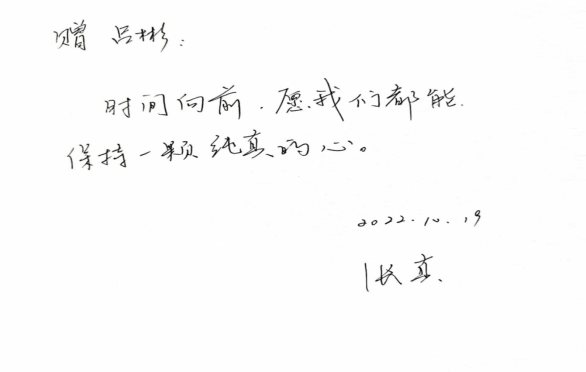 赠 吕彬：
时间向前，愿我们都能
保持一颗纯真的心。
2022.10.19
张真